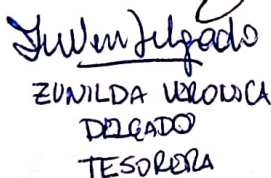 Zullen Delgado
ZUNILDA VERONICA
DELGADO
TESORERA